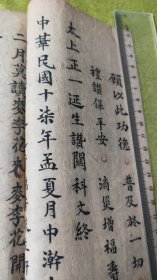 願以此功德　普及於一切
禮讚保平安。消災增福壽
太上正一延生讚關科文終
中華民國十柒年孟夏月中澣
二月莫讀麥李花來麥李花開